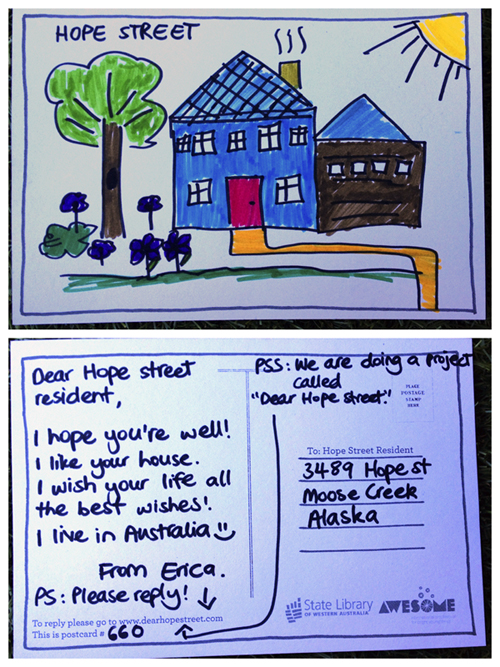 HOPE STREET
Dear Hope street
resident,
I hope you're well!
I like your house.
I wish your life all
the best wishes!
I live in Australia
From Erica.
PS: Please reply!
To reply please go to www.dearhopestreet.com
This is postcard # 660
PSS: We are doing a project
called
"Dear Hope street."
PLACE
POSTAGE
STAMP
HERE
To: Hope Street Resident
3489 Hope st
Moose Creek
Alaska
State Library
OF WESTERN AUSTRALIA
AWESOME